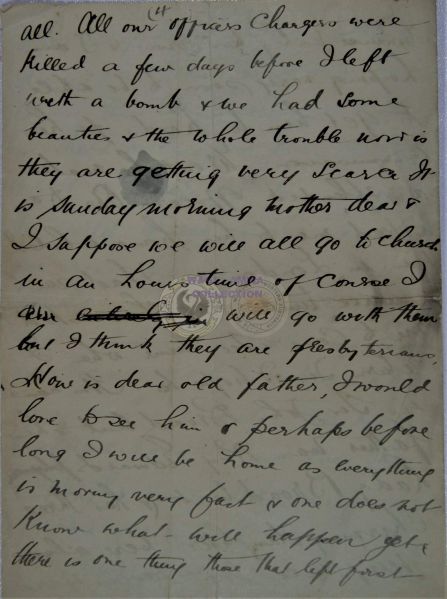 (4
all. All our officers Chargers were
killed a few days before I left
with a bomb & we had some
beauties & the whole trouble now is
they are getting very scarce It
is Sunday morning mother dear &
I suppose we will all go to church
in an hours time of course I
will go with them
but I think they are presbyterians,
How is dear old father, I would
love to see him & perhaps before
long I will be home as everything
is moving very fast & one does not
know what will happen yet,
there is one thing those that left first
COLLECTION